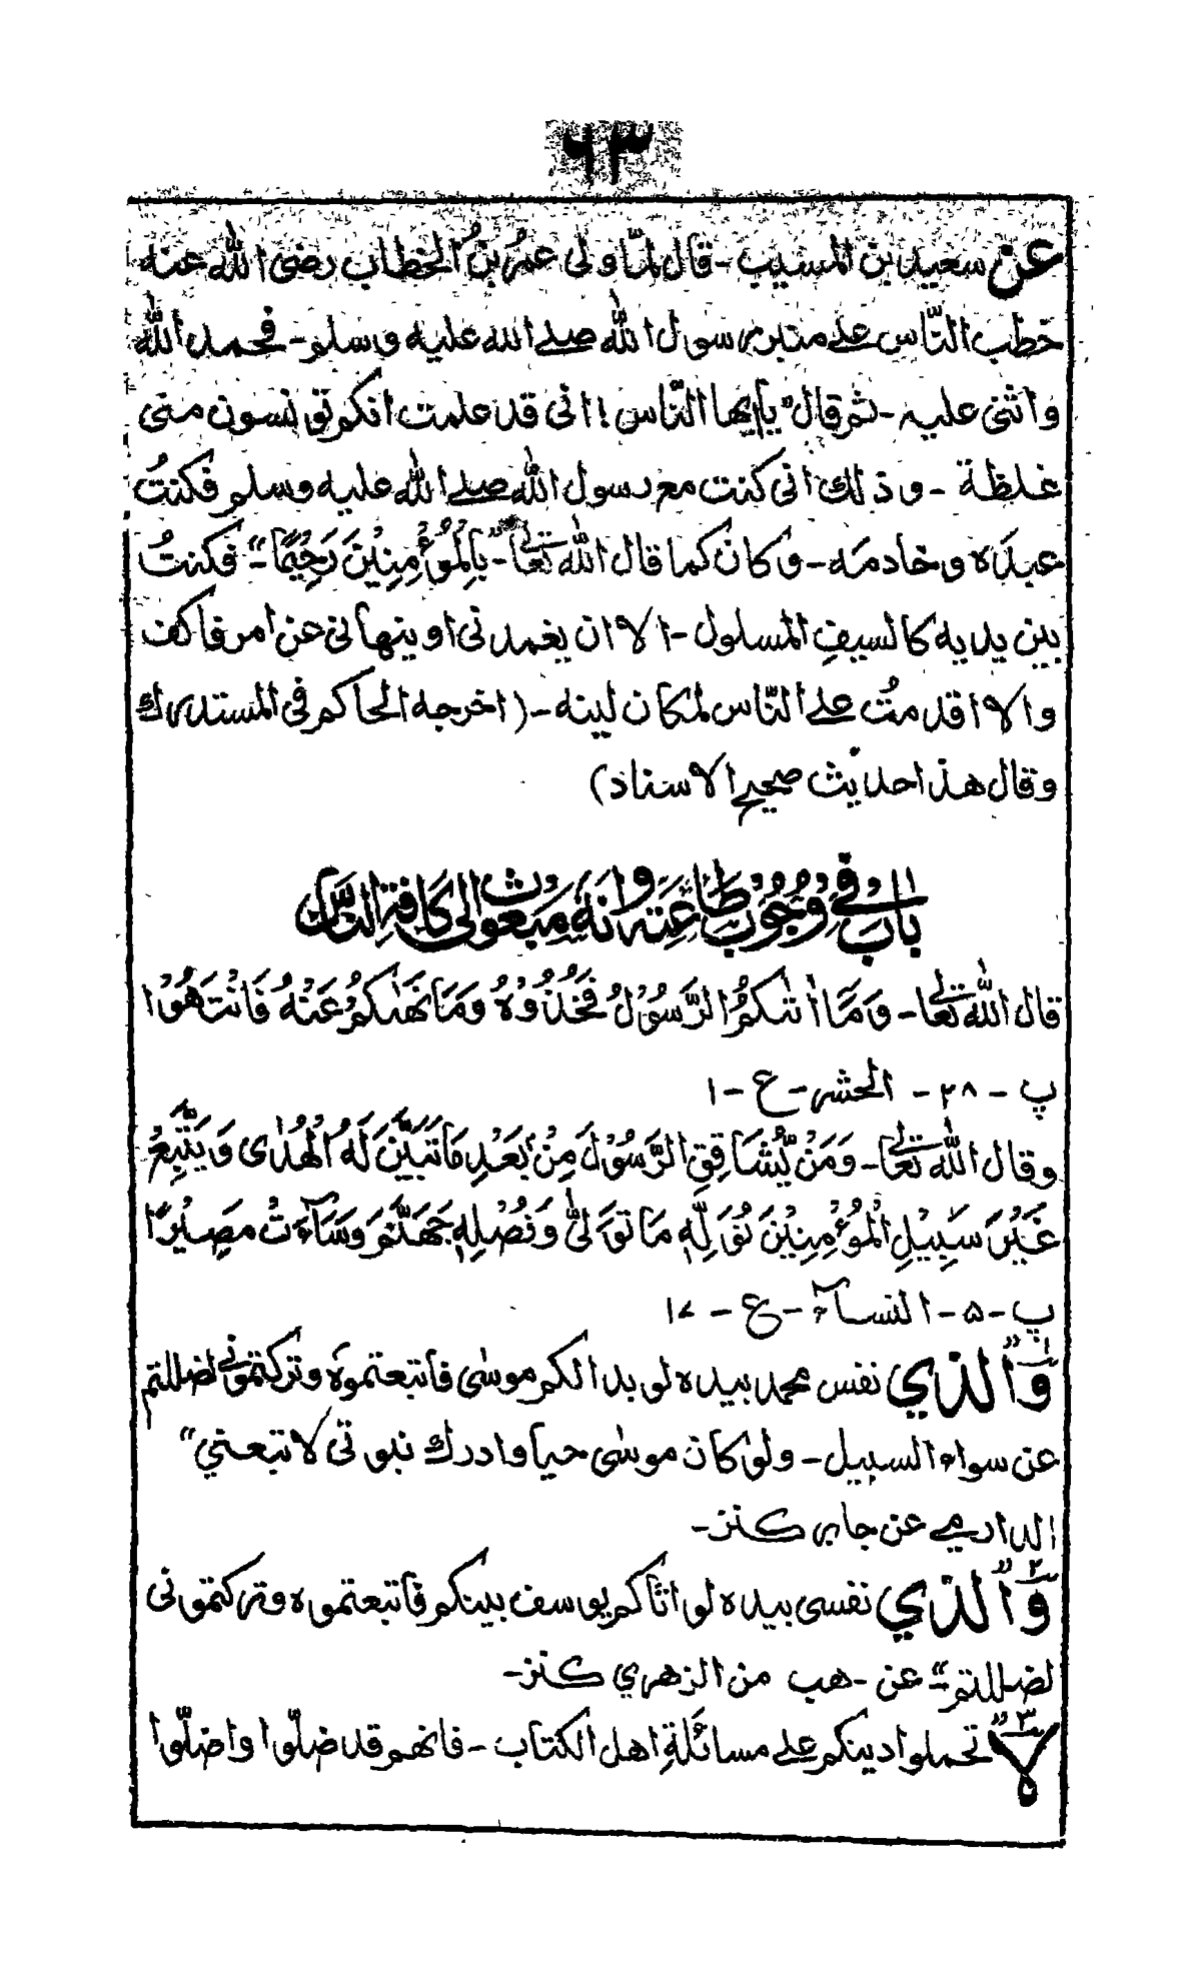 ٦٣
عن سعيد بن المسيب - قال لمّا ولى عمرُ بنُ الخطاب رضى الله عنه
خطب النّاس على منبر رسول الله صلے الله عليه وسلم - فحمد الله
واثنى عليه - ثم قال "يآيها النّاس! انى قد علمت انكم تؤنسون منى
غلظة - وذلك انى كنت مع رسول الله صلے الله عليه وسلم فكنتُ
عبدَه وخادمَه - وكان كما قال الله تعالى - "بِالْمُؤْمِنِيْنَ رَحِيْمًا" - فكنتُ
بين يديه كالسيفِ المسلول - الا ان يغمدنى او ينهانى عن امر فاكف
والا اقدمتُ على النّاس لمكان لينه - (اخرجه الحاكم فى المستدرك
وقال هذا حديث صحيح الاسناد)
بابٌ فِي وُجُوْبِ طَاعَتِهٖ وَاَنَّهٗ مَبْعُوْثٌ اِلى كَافَةِ النَّاسِ
قال الله تعالى - وَمَآ اٰتٰىكُمُ الرَّسُوْلُ فَخُذُوْهُ وَمَا نَهٰىكُمْ عَنْهُ فَانْتَهُوْا
پ - ٢٨ - الحشر - ع - ١
وقال الله تعالى - وَمَنْ يُّشَاقِقِ الرَّسُوْلَ مِنْۢ بَعْدِ مَا تَبَيَّنَ لَهُ الْهُدٰى وَيَتَّبِعْ
غَيْرَ سَبِيْلِ الْمُؤْمِنِيْنَ نُوَلِّهٖ مَا تَوَلّٰى وَنُصْلِهٖ جَهَنَّمَ وَسَآءَتْ مَصِيْرًا
پ - ۵ - النسآء - ع - ١٧
١ "وَالذي نفس محمد بيده لو بدا لكم موسٰى فاتبعتموهُ وتركتمونى لضللتم
عن سواء السبيل - ولو كان موسٰى حيا وادرك نبوتى لاتبعني"
الدارمے عن جابر كنز -
٢ "وَالذي نفسى بيده لو اتاكم يوسف بينكم فاتبعتموه وتركتمونى
لضللتم" - عن - هب من الزهري كنز -
٣ "لا تحملوا دينكم على مسائلةِ اهل الكتاب - فانهم قد ضلّوا واضلّوا